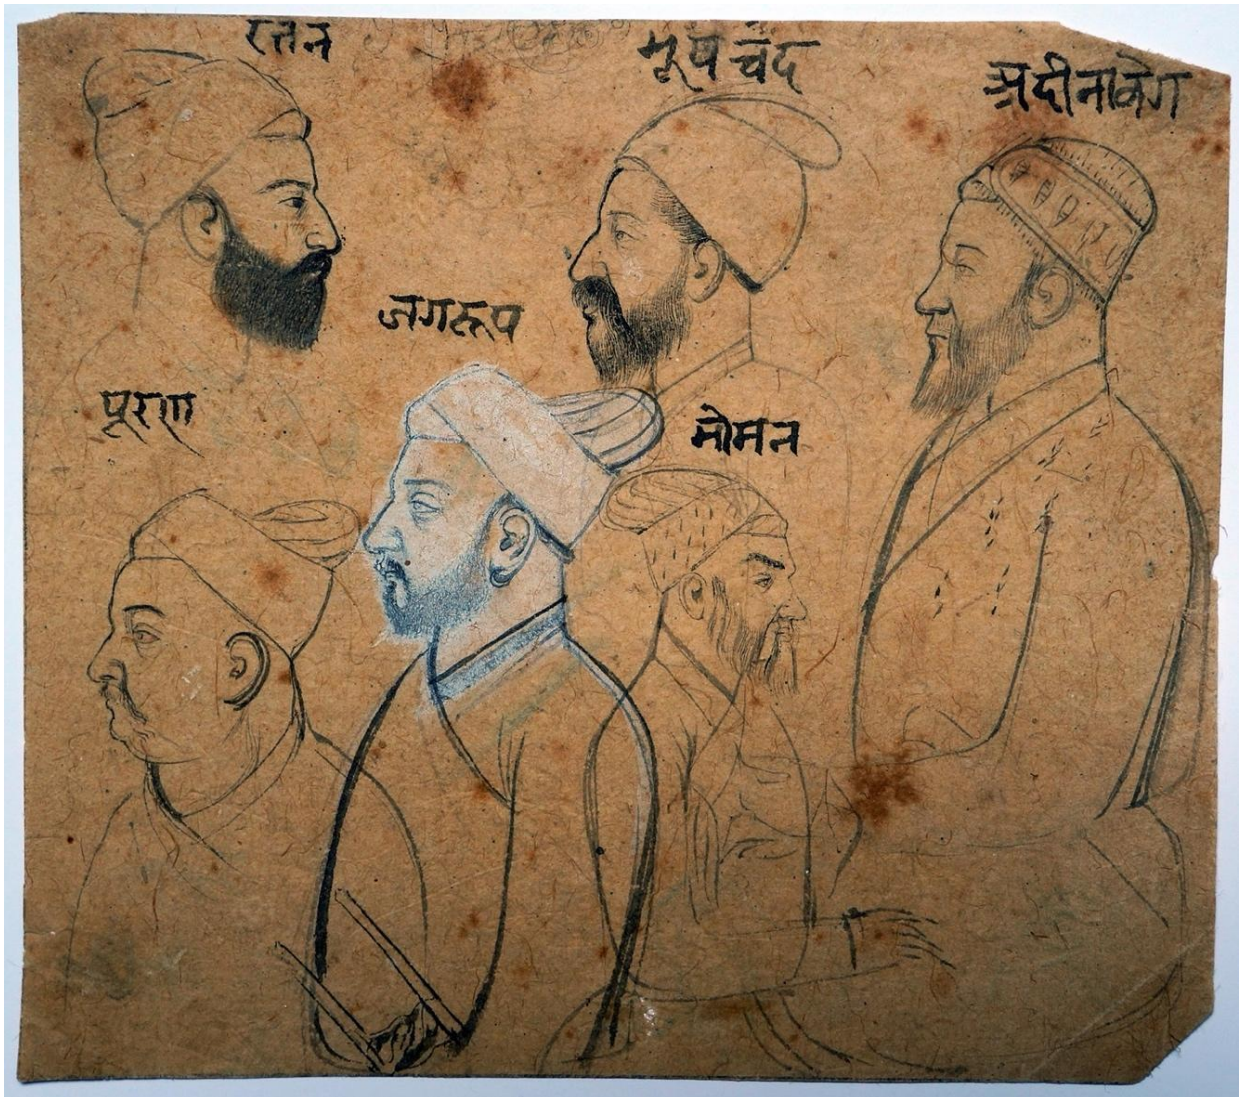 रतन
भूप चंद
अदीनाबेग
जगरूप
पूरण
मोमन